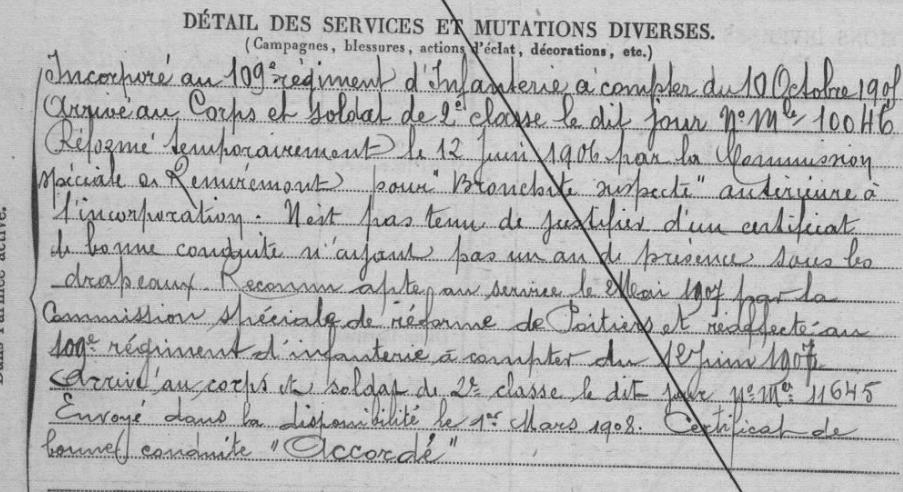 DÉTAIL DES SERVICES ET MUTATIONS DIVERSES.
(Campagnes, blessures, actions d'éclat, décorations, etc.)
Incorporé au 109e régiment d'Infanterie à compter du 10 Octobre 190
Arrivé au Corps et soldat de 2e classe le dit jour No Mle 10046
Réformé temporairement le 12 Juin 1906 par la Commission
spéciale de Remiremont pour "Bronchite suspecte" antérieure à
l'incorporation. N'est pas tenu de justifier d'un certificat
de bonne conduite n'ayant pas un an de présence sous les
drapeaux. Reconnu apte au service le Mai 1907 par la
Commission spéciale de réforme de Poitiers et réaffecté au
109e régiment d'infanterie à compter du 1er Juin 1907
Arrivé au corps et soldat de 2e classe le dit jour no Mle 11645
Envoyé dans la disponibilité le 1er Mars 1908. Certificat de
bonne conduite "Accordé"
Dans l'armée active.